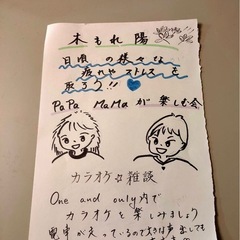 木もれ陽
日頃の様々な
疲れやストレスを
取ろう!!
PaPa MaMaが楽しむ会
カラオケ☆雑談
One and only内で
カラオケを楽しみましょう